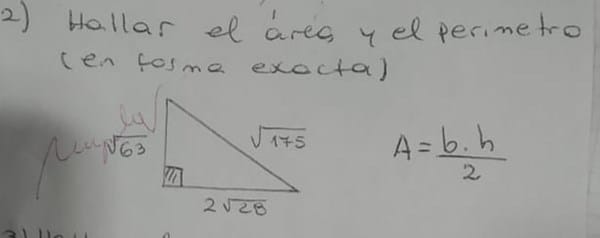 2) Hallar el área y el perimetro
(en forma exacta)
√63
√175
A = b.h/2
2√28